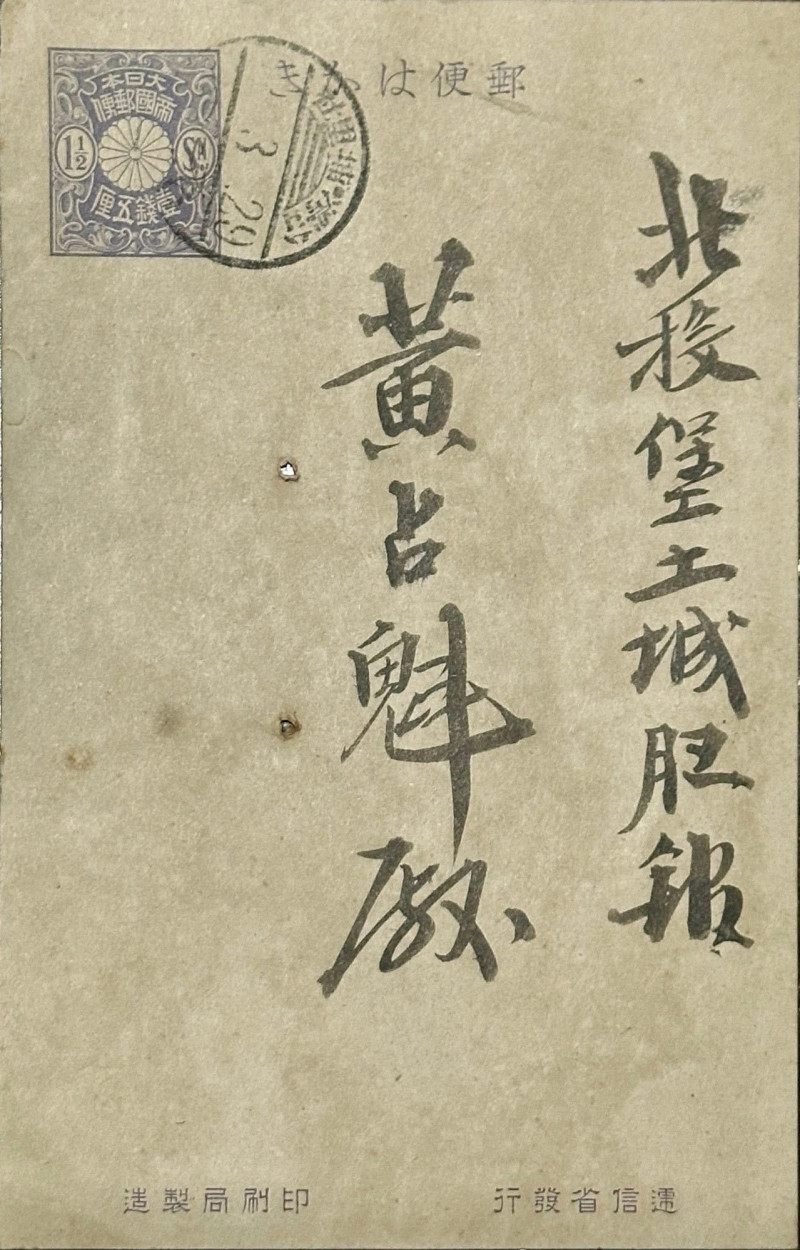 郵便はかき
大日本
帝國郵便
1½ Sn
壹錢五厘
3 .29
北投堡土城
黃占魁殿
遞信省發行
印刷局製造